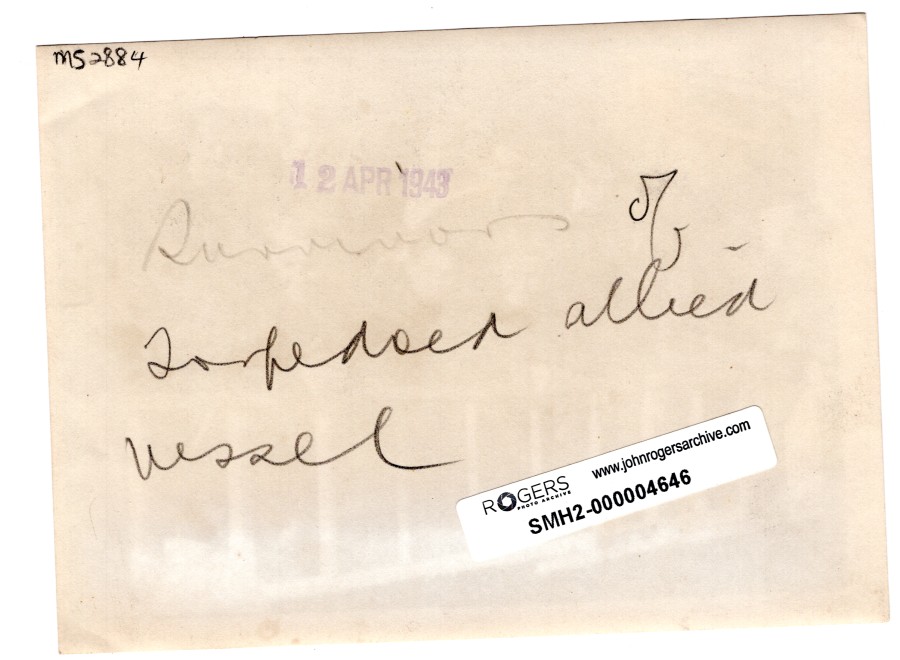 MS2884
12 APR 1943
Survivors of
torpedoed allied
vessel
ROGERS
PHOTO ARCHIVE
www.johnrogersarchive.com
SMH2-000004646